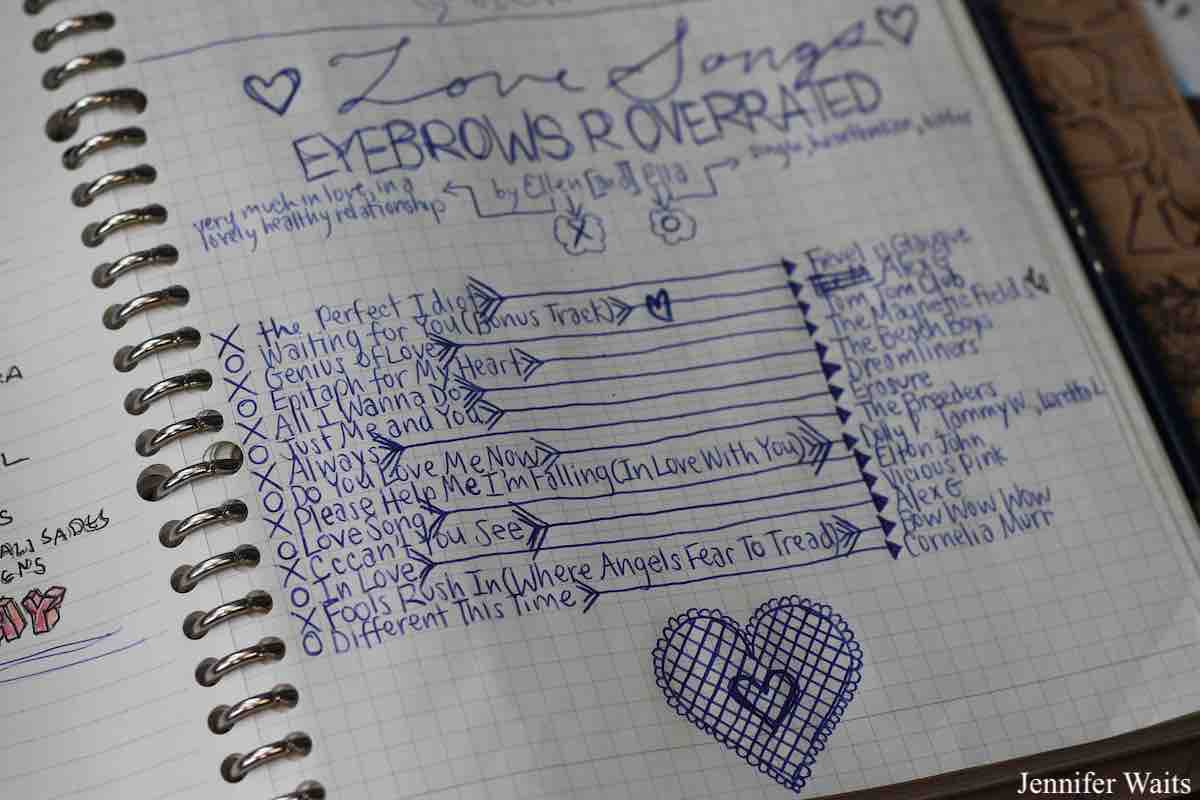 Love Songs
EYEBROWS R OVERRATED
by Ellen [and] Ella
single, heartbroken, bitter
very much in love, in a
lovely healthy relationship
X O
X the Perfect Idiot
O Waiting for You (Bonus Track) Alex G
X Genius Of Love Tom Tom Club
O Epitaph for My Heart The Magnetic Fields
X All I Wanna Do The Beach Boys
O Just Me and You Dreamliners
X Always Erasure
O Do You Love Me Now The Breeders
X Please Help Me I'm Falling (In Love With You) Dolly P. Tammy W., Loretta L
O Love Song Elton John
X Cccan't You See Vicious Pink
O In Love Alex G
X Fools Rush In (Where Angels Fear To Tread) Bow Wow Wow
O Different This Time Cornelia Murr
RA
L
S
ALISADES
ENS
AY
Jennifer Waits